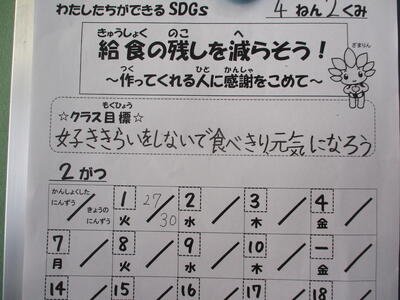 わたしたちができるSDGs 4ねん2くみ
きゅうしょく のこ へ
給食の残しを減らそう!
つく ひと かんしゃ
～作ってくれる人に感謝をこめて～
ざまりん
もくひょう
☆クラス目標☆
好ききらいをしないで食べきり元気になろう
2がつ
かんしょくした にんずう/きょうの にんずう 1 火 27/30 2 水 / 3 木 / 4 金 /
7 月 / 8 火 / 9 水 / 10 木 / ー 金 /
14 15 16 17 18